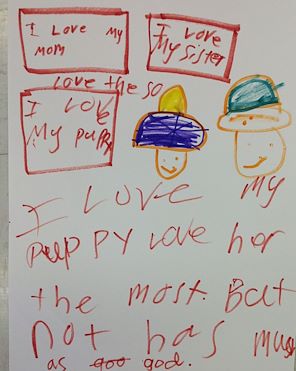 I Love My
mom
I Love
My sister
love the so
I LOVE
My puppy
I LOVE My
puppy Love her
the most. But
not has much
as goo god.